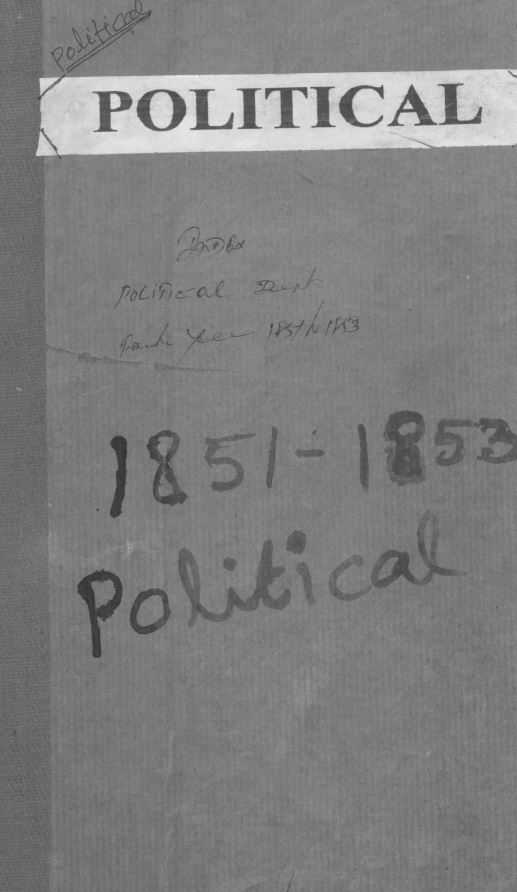 Political
POLITICAL
Index
Political Dept
Year 1851 to 1853
1851-1853
Political